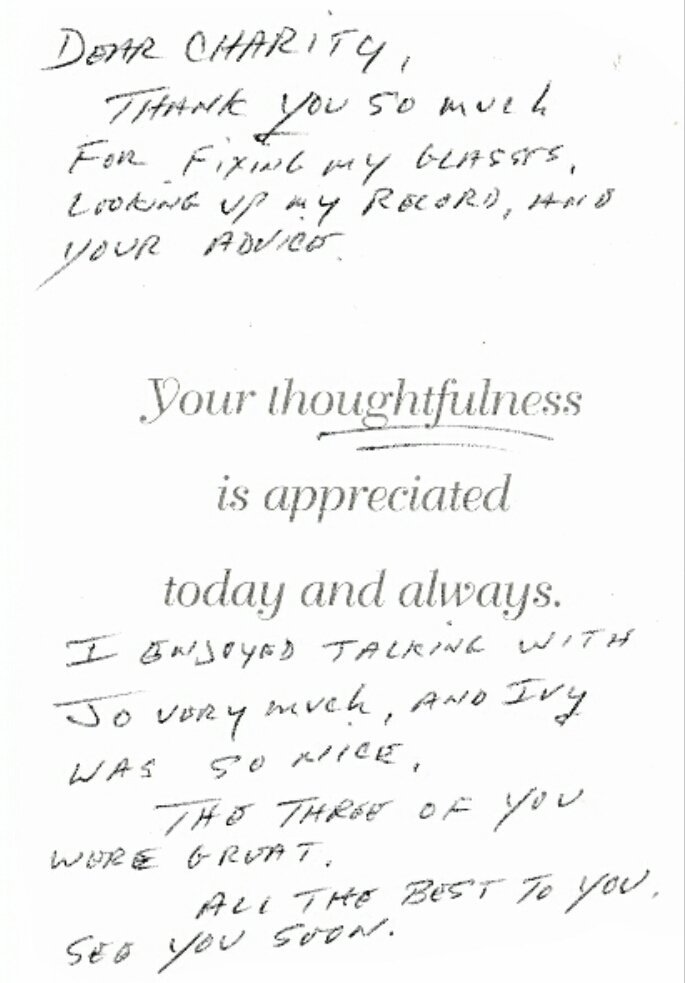 DEAR CHARITY,
THANK YOU SO MUCH
FOR FIXING MY GLASSES,
LOOKING UP MY RECORD, AND
YOUR ADVICE.
Your thoughtfulness
is appreciated
today and always.
I ENJOYED TALKING WITH
JO VERY MUCH, AND IVY
WAS SO NICE.
THE THREE OF YOU
WERE GREAT.
ALL THE BEST TO YOU.
SEE YOU SOON.